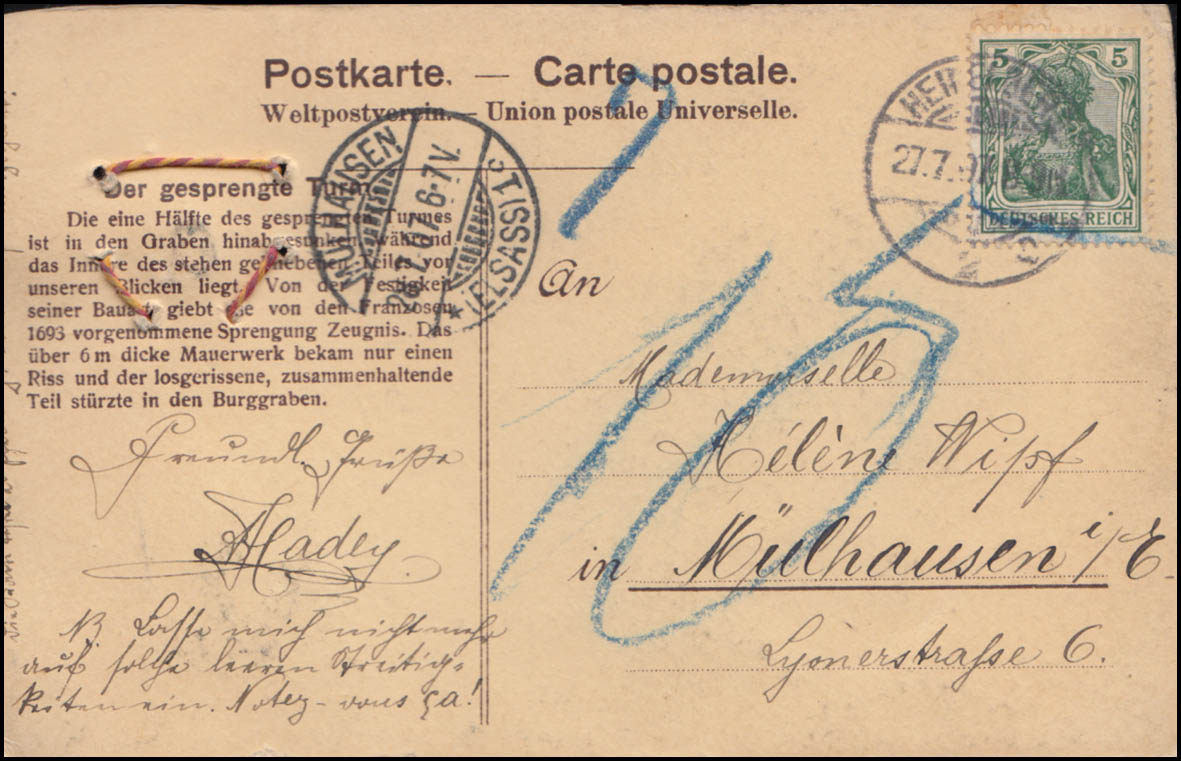 Postkarte. — Carte postale.
Weltpostverein. — Union postale Universelle.
5 5
DEUTSCHES REICH
27.7.07
MÜLHAUSEN
28.7.07 6-7V.
* (ELSASS) 1 c
Der gesprengte Turm.
Die eine Hälfte des gesprengten Turmes
ist in den Graben hinabgesunken, während
das Innere des stehen gebliebenen Teiles vor
unseren Blicken liegt. Von der Festigkeit
seiner Bauart giebt die von den Franzosen
1693 vorgenommene Sprengung Zeugnis. Das
über 6 m dicke Mauerwerk bekam nur einen
Riss und der losgerissene, zusammenhaltende
Teil stürzte in den Burggraben.
Freundl. Grüße
AHadey.
NB Lasse mich nicht mehr
auf solche leeren Streitig-
keiten ein. Notez-vous ça!
An
Mademoiselle
Hélène Wipf
in Mülhausen i/E.
Lyonerstraße 6.
10